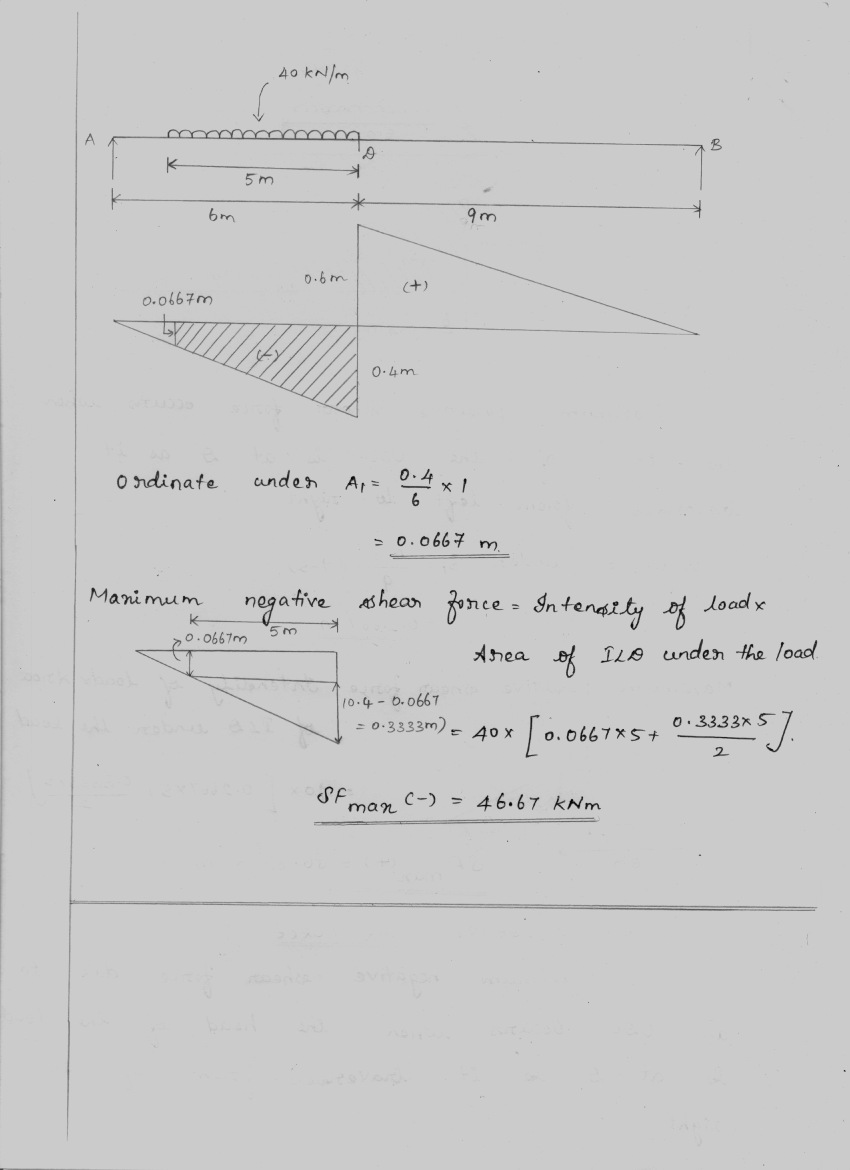 40 kN/m
A
D
B
5m
6m
9m
0.6m
(+)
0.0667m
(-)
0.4m
Ordinate under A₁ = 0.4/6 × 1
= 0.0667 m
Maximum negative shear force = Intensity of load ×
5m
0.0667m
Area of ILD under the load
(0.4 - 0.0667
= 0.3333m)
= 40 × [0.0667×5 + 0.3333×5/2].
SF max (-) = 46.67 kNm